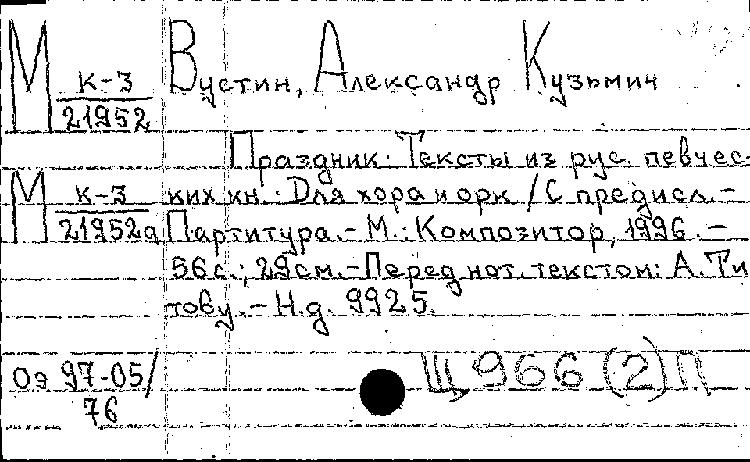 М К-3 Вустин, Александр Кузьмич
21952
Праздник: Тексты из рус. певчес-
М К-3 ких кн.: Для хора и орк / С предисл. –
21952а Партитура. – М.: Композитор, 1996. –
56 с.; 29 см. – Перед нот. текстом: А. Ти
тову. – Н.д. 9925.
Оэ 97-05/ Щ966(2)П
76